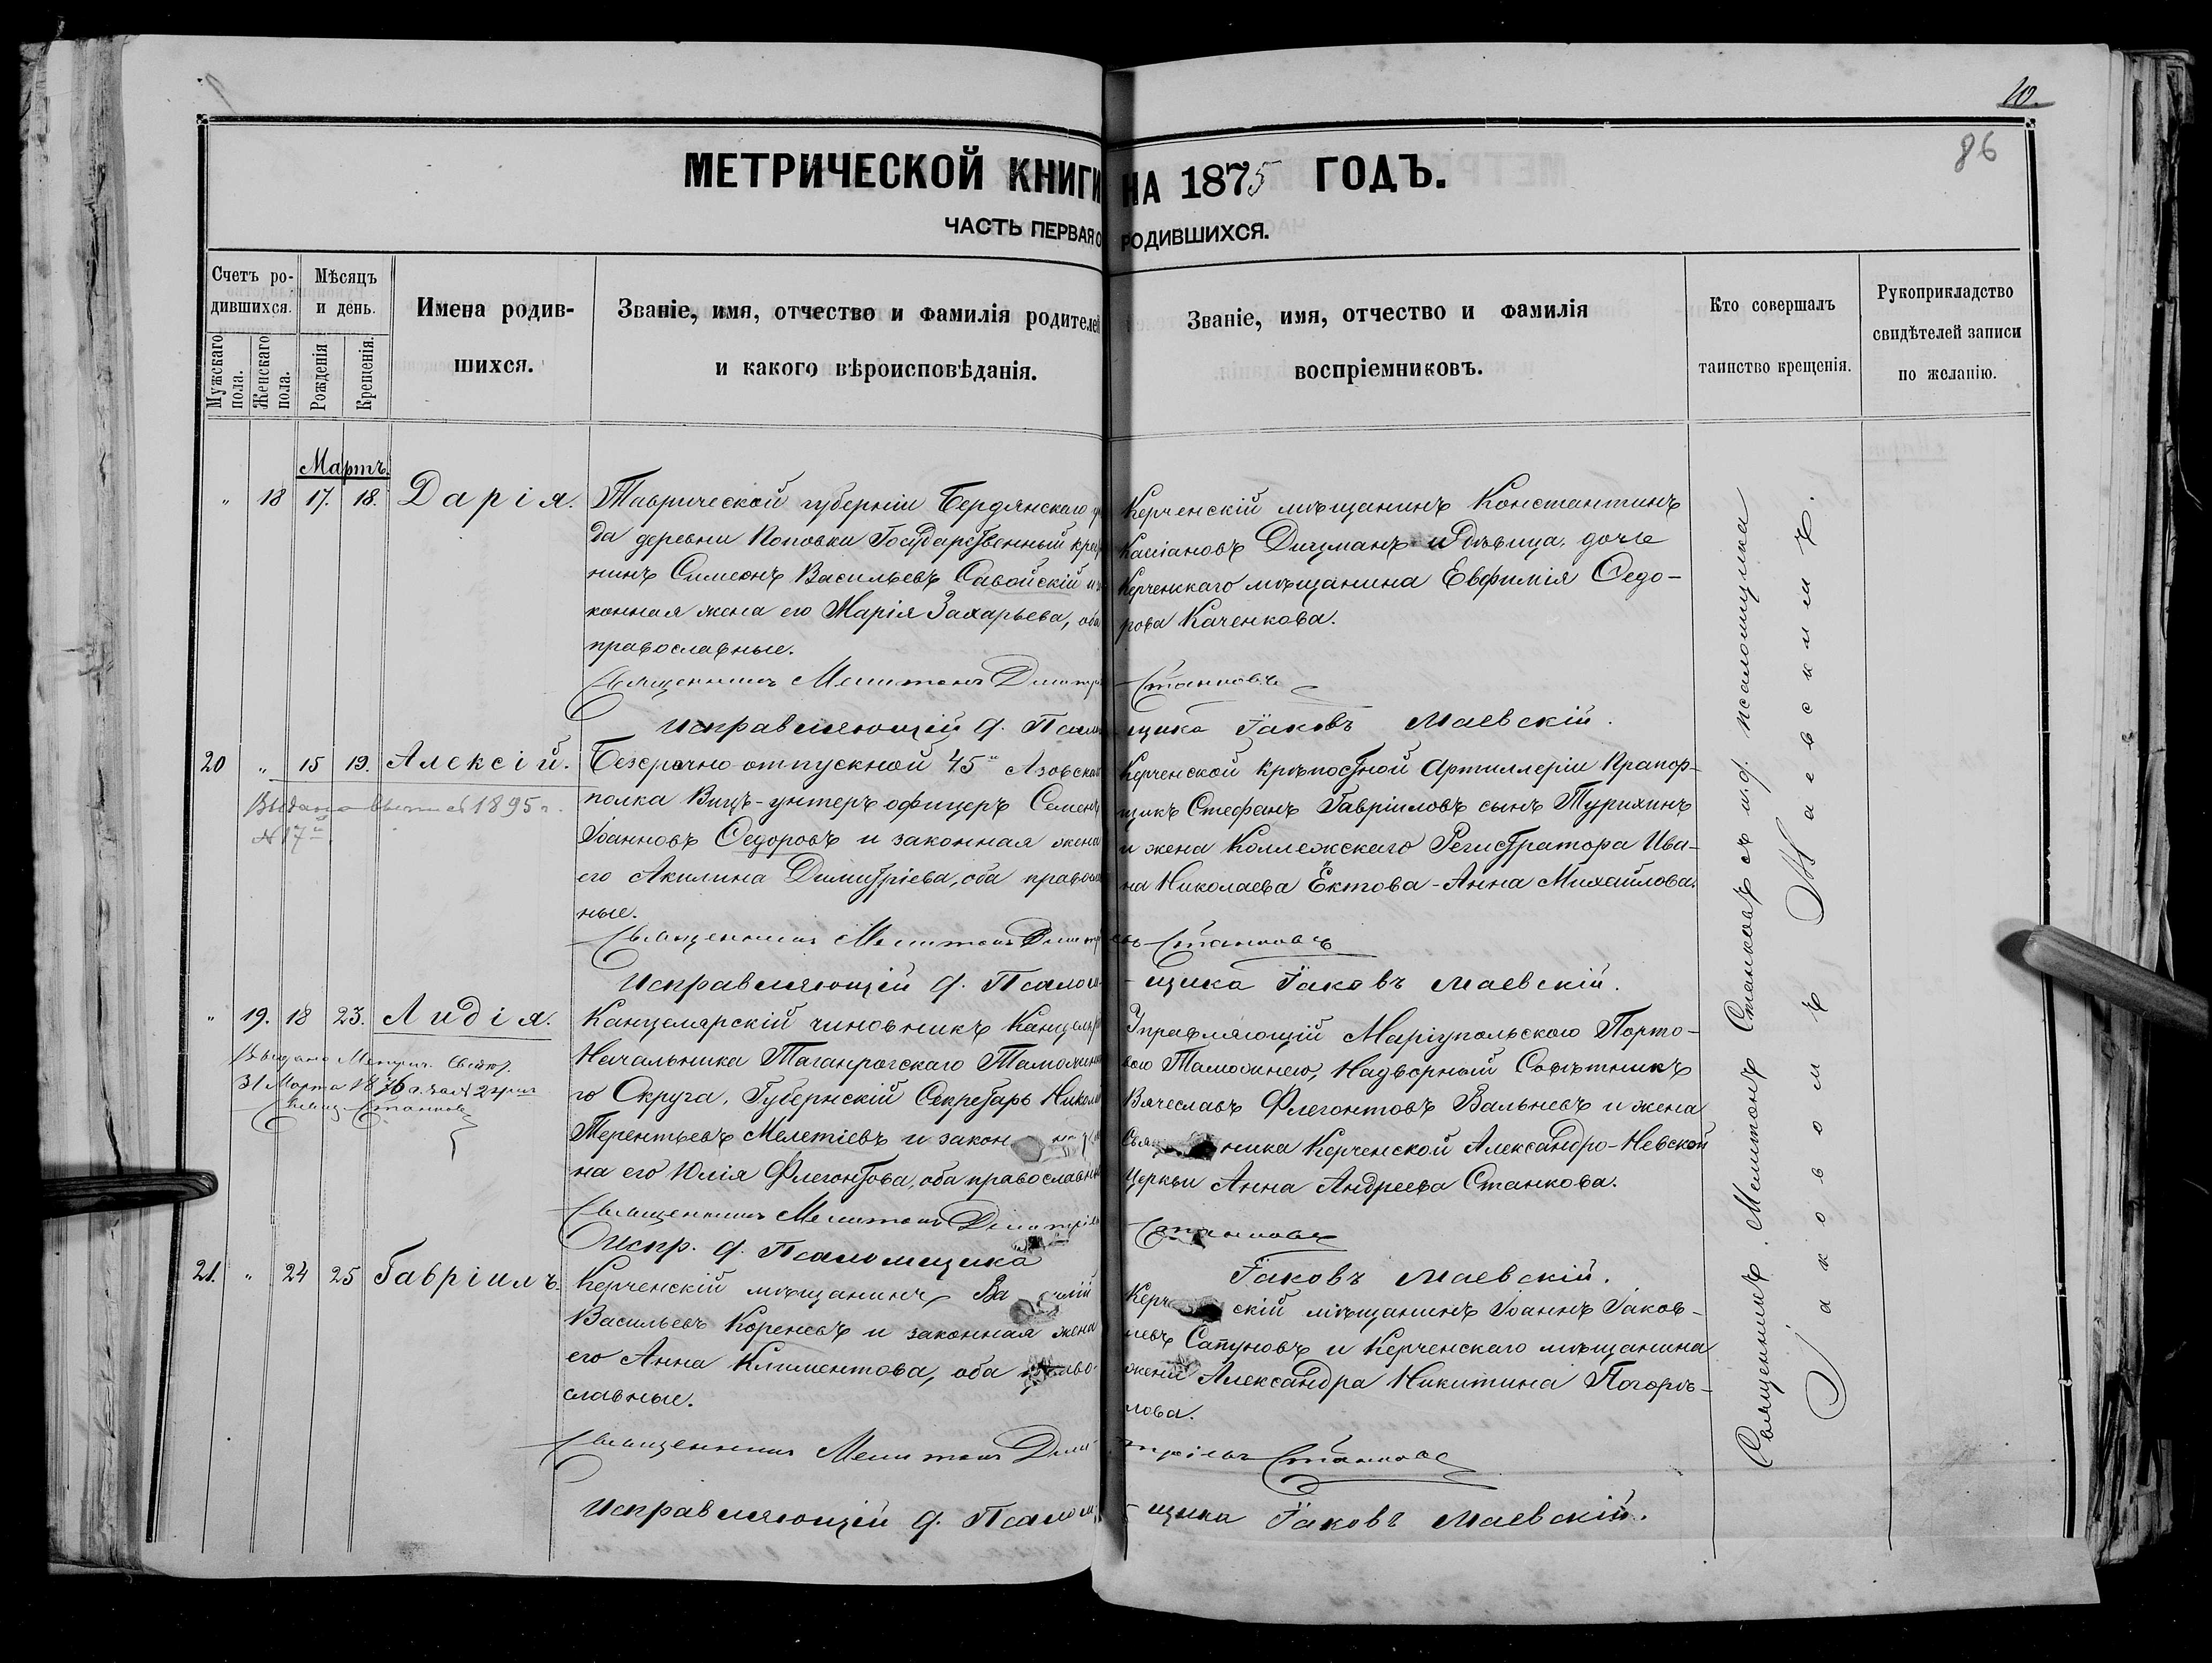 10.
86
МЕТРИЧЕСКОЙ КНИГИ НА 1875 ГОДЪ.
ЧАСТЬ ПЕРВАЯ О РОДИВШИХСЯ.
Счетъ ро-
дившихся.
Мужскаго пола.
Женскаго пола.
Мѣсяцъ
и день.
Рожденія
Крещенія.
Имена родив-
шихся.
Званіе, имя, отчество и фамилія родителей
и какого вѣроисповѣданія.
Званіе, имя, отчество и фамилія
воспріемниковъ.
Кто совершалъ
таинство крещенія.
Рукоприкладство
свидѣтелей записи
по желанію.
Мартъ.
" 18 17. 18. Дарія.
Таврической губерніи Бердянскаго
да деревни Поповки Государственный
нинъ Симеонъ Васильевъ Савойскій
конная жена его Марія Захарьева,
православные.
Керченскій мѣщанинъ Константинъ
Касіановъ и дѣвица, дочь
Керченскаго мѣщанина Евфимія Ѳедо-
рова Каченкова.
Священникъ Мелитонъ Станковъ
Исправляющій д. Псаломщика Іаковъ Маевскій.
20 " 15 19. Алексій.
Выдано 1895 г.
№ 17
Безсрочно-отпускной 45го Азовскаго
полка Вицъ-унтеръ офицеръ Семенъ
Іоанновъ Ѳедоровъ и законная жена
его Акилина Димитріева, оба
ные.
Керченской крѣпостной Артиллеріи Прапор-
щикъ Стефанъ Гавріиловъ сынъ Турихинъ
и жена Коллежскаго Регистратора Ива-
на Николаева Ектова - Анна Михайлова.
Священникъ Мелитонъ Станковъ
Исправляющій д. Псаломщика Іаковъ Маевскій.
" 19. 18 23. Лидія.
Выдано Метрич. Свид.
31 Марта 1876 г. за № 24
Свящ. Станковъ
Канцелярскій чиновникъ
Начальника Таганрогскаго
го Округа, Губернскій Секретарь
Терентьевъ Мелетіевъ и
на его Юлія Флегонтова, оба православные
Управляющій Маріупольскою Порто-
вою Таможнею, Надворный Совѣтникъ
Вячеславъ Флегонтовъ Вальневъ и жена
ника Керченской Александро-Невской
Церкви Анна Андреева Станкова.
Священникъ Мелитонъ Станковъ
Испр. д. Псаломщика Іаковъ Маевскій.
21. " 24 25 Гавріилъ.
Керченскій мѣщанинъ
Васильевъ Кореневъ и законная жена
его Анна Климентова, оба право-
славные.
скій мѣщанинъ Іоаннъ Іаков-
левъ Сапуновъ и Керченскаго мѣщанина
жена Александра Никитина Погорѣ-
лова.
Священникъ Мелитонъ Димитріевъ Станковъ
Исправляющій д. Псаломщика Іаковъ Маевскій.
Священникъ Мелитонъ Станковъ съ и.д. псаломщика
Іаковомъ Маевскимъ.